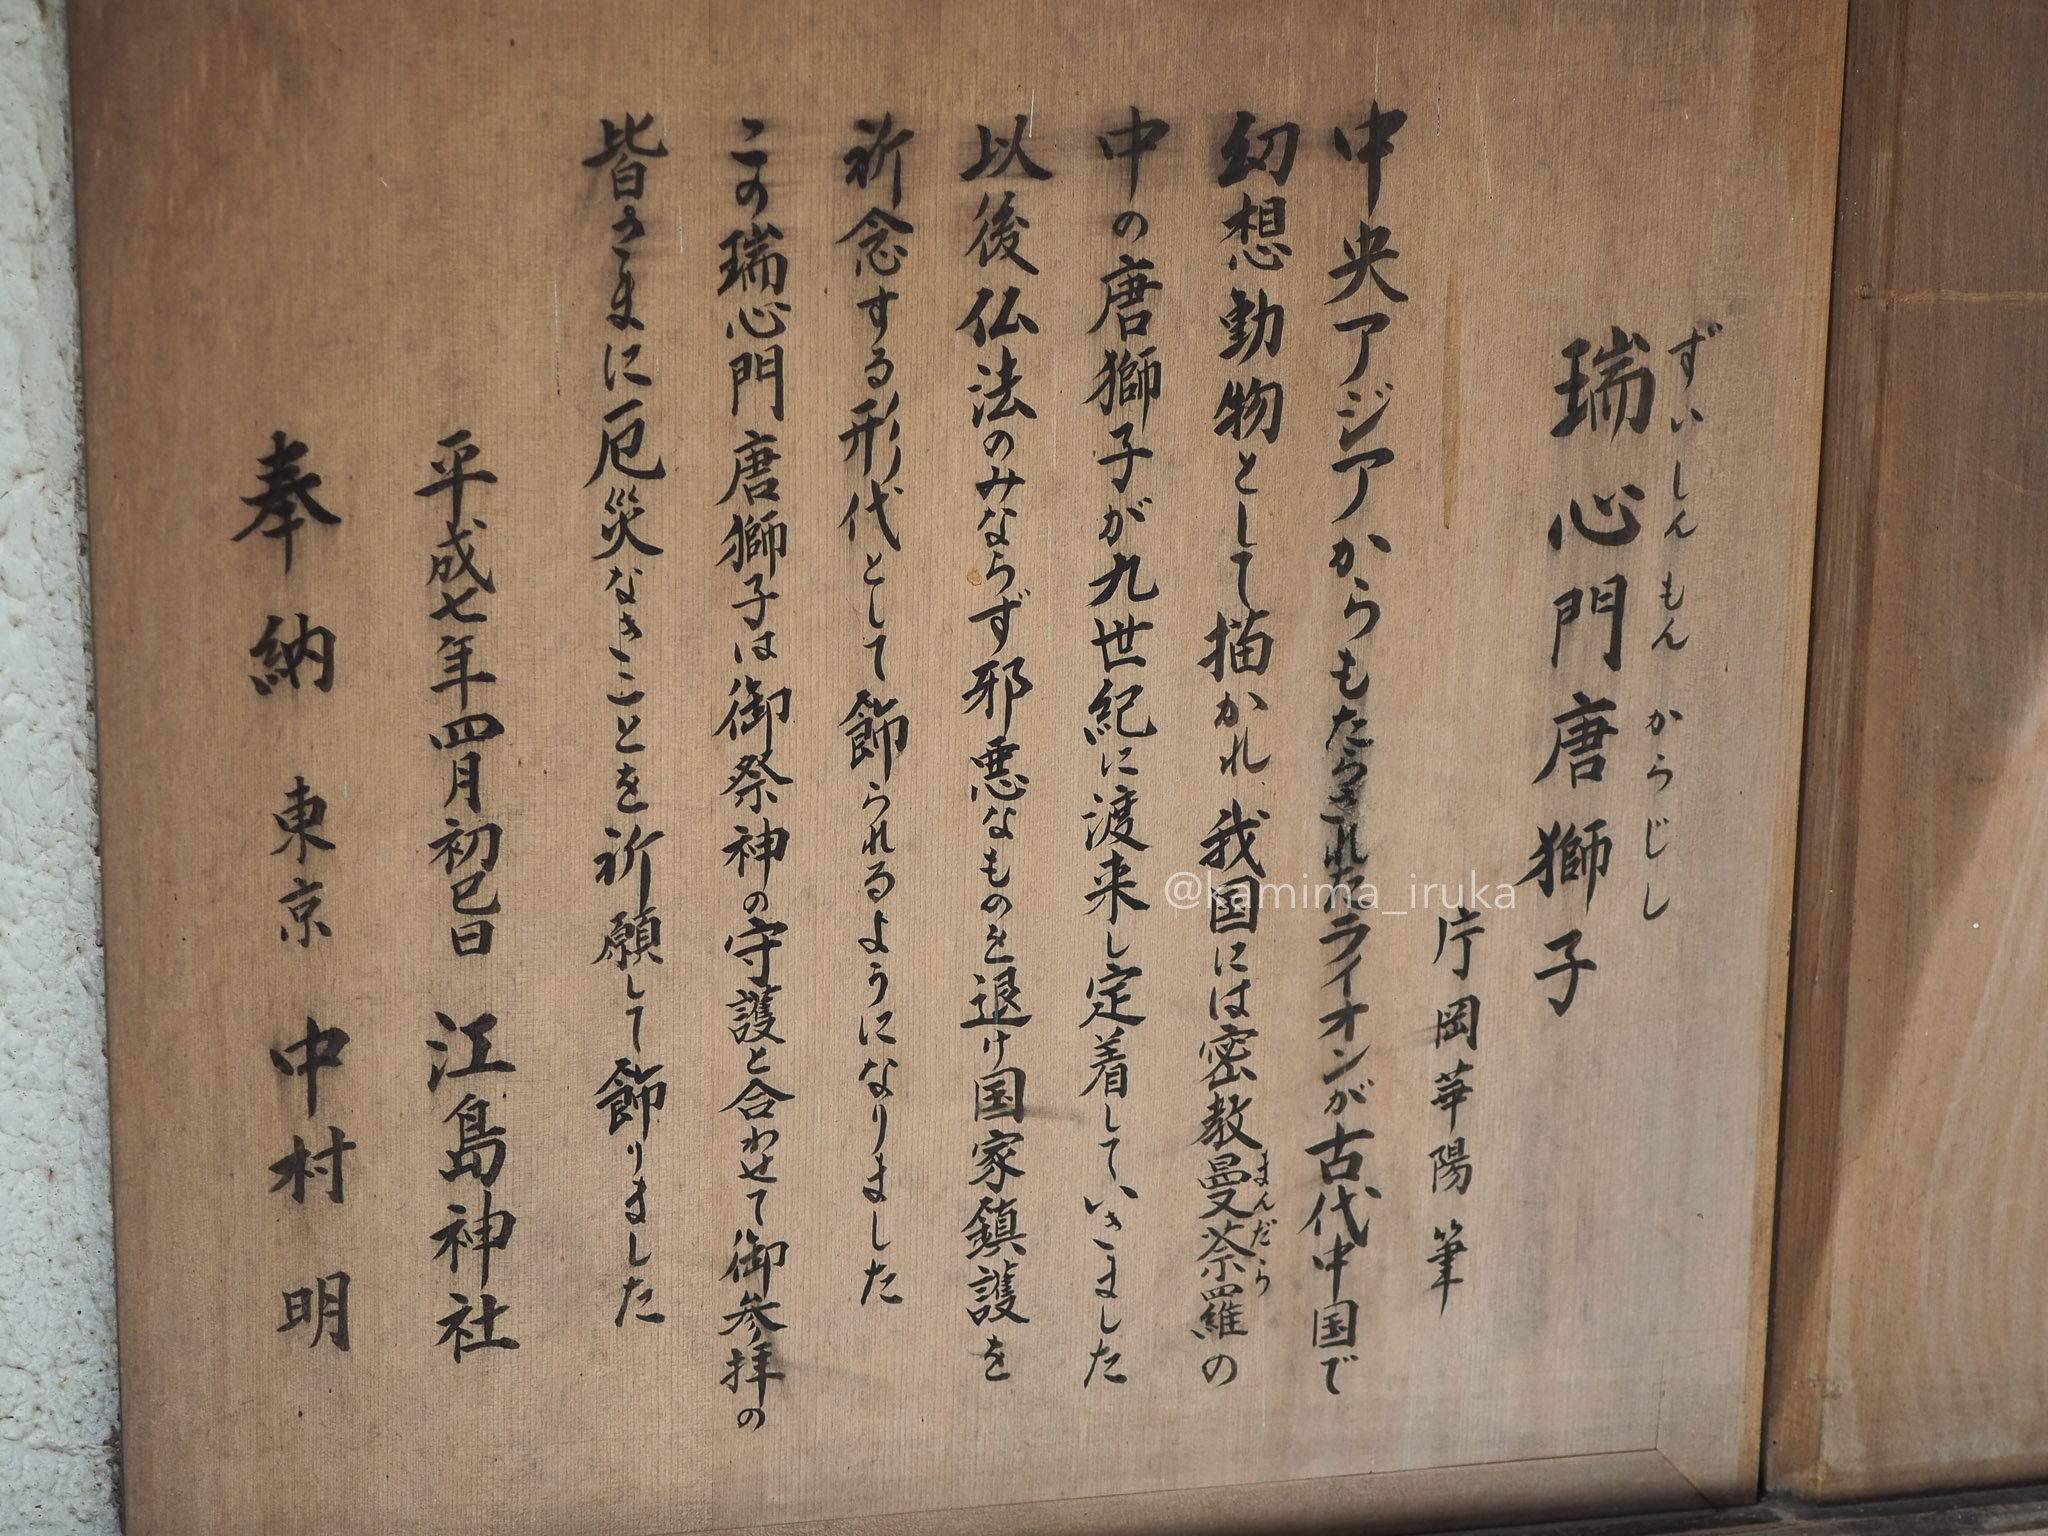 ずいしんもん からじし
瑞心門唐獅子
片岡華陽 筆
中央アジアからもたらされたライオンが古代中国で
幻想動物として描かれ我国には密教曼荼羅の
まんだら
中の唐獅子が九世紀に渡来し定着していきました
以後仏法のみならず邪悪なものを退け国家鎮護を
祈念する形代として飾られるようになりました
この瑞心門唐獅子は御祭神の守護と合わせて御参拝の
皆さまに厄災なきことを祈願して飾りました
平成七年四月初巳日 江島神社
奉納 東京 中村明
@kamima_iruka